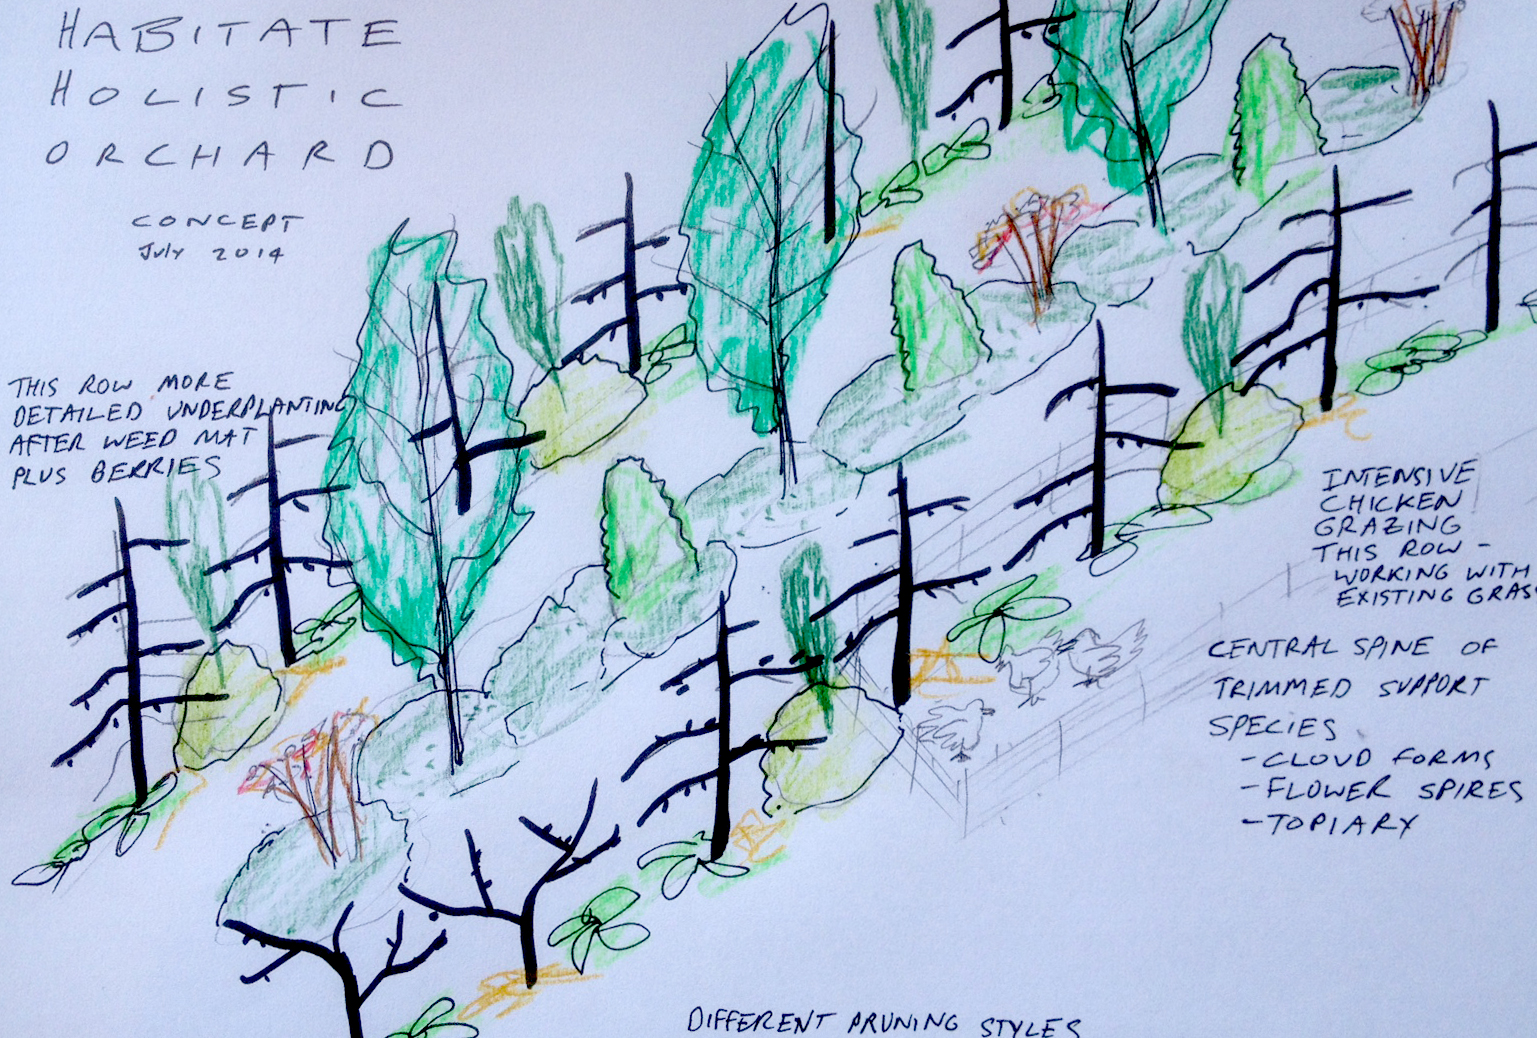 HABITATE
HOLISTIC
ORCHARD
CONCEPT
July 2014
THIS ROW MORE
DETAILED UNDERPLANTING
AFTER WEED MAT
PLUS BERRIES
INTENSIVE
CHICKEN
GRAZING
THIS ROW -
WORKING WITH
EXISTING GRAS
CENTRAL SPINE OF
TRIMMED SUPPORT
SPECIES
- CLOUD FORMS
- FLOWER SPIRES
- TOPIARY
DIFFERENT PRUNING STYLES